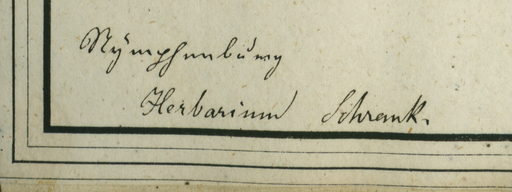 Nÿmphenburg
Herbarium Schrank.